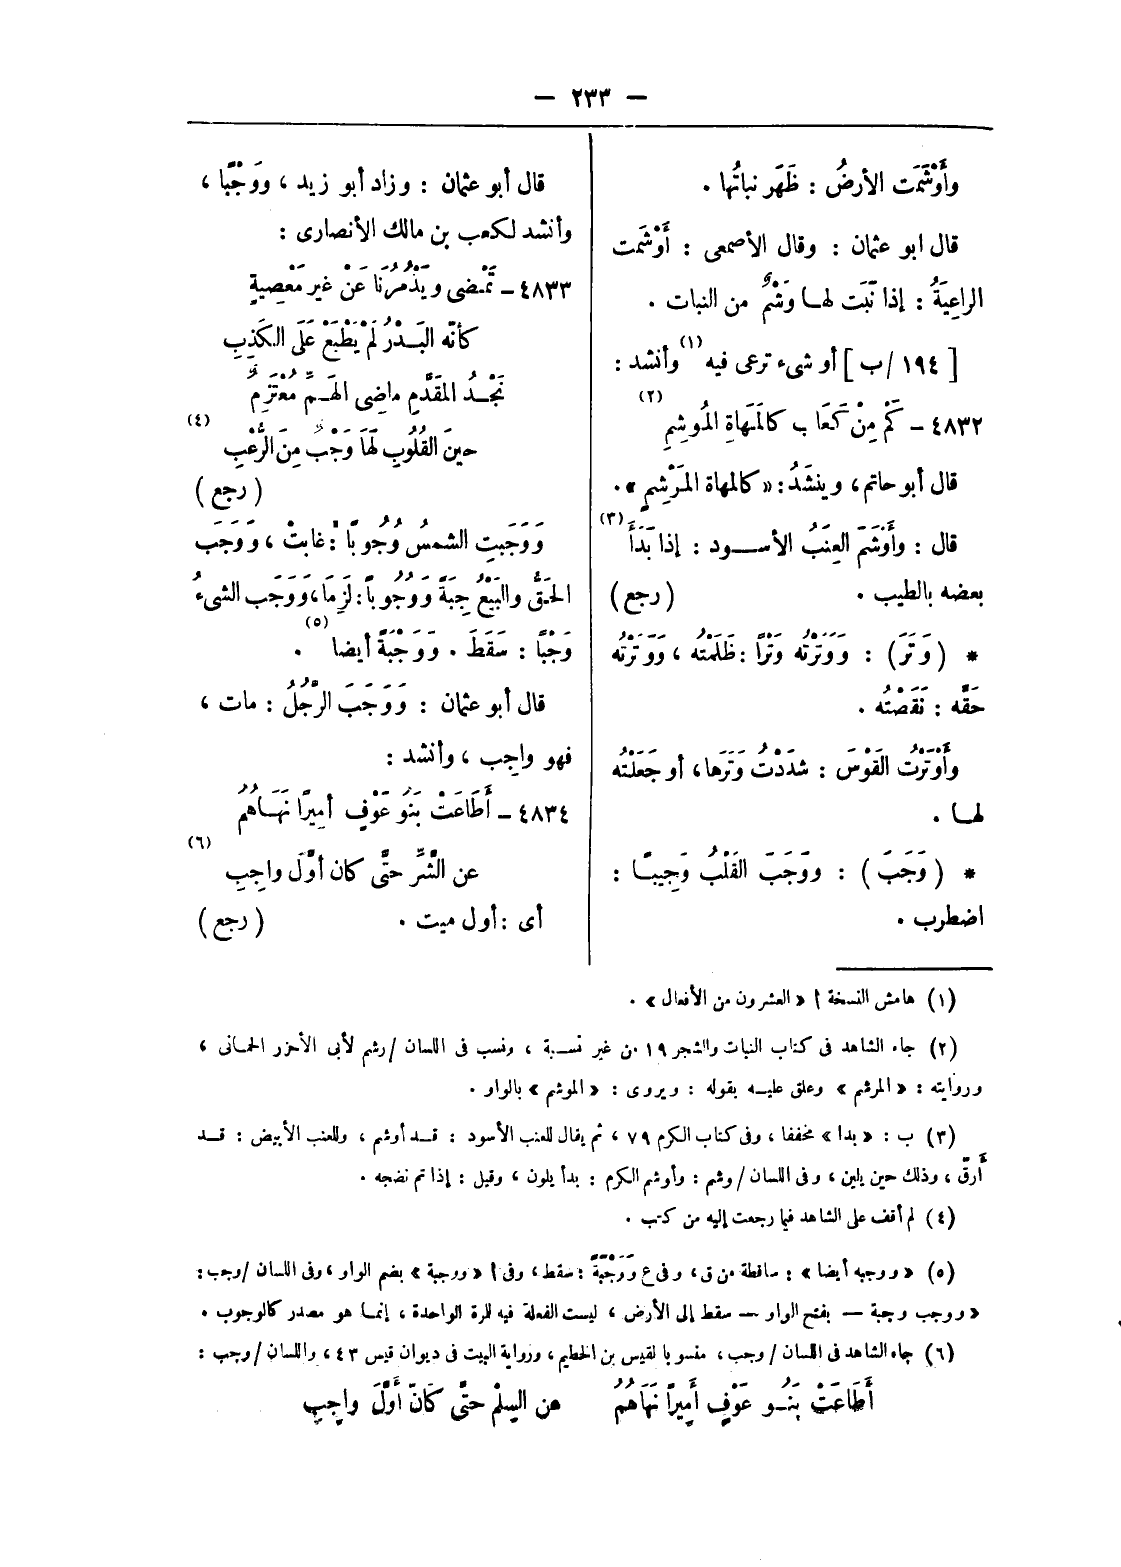 — ٢٣٣ —
وأَوْشَمَت الأرضُ : ظَهَر نباتُها .
قال ابو عثمان : وقال الأصمعى : أَوْشَمت
الراعِيَةُ : إذا نَبَت لهـا وَشْمٌ من النبات .
[ ١٩٤ /ب ] أو شىء ترعى فيه (١) وأنشد :
٤٨٣٢ – كَمْ مِنْ كَعَابٍ كالمَهاةِ المُوشِمِ (٢)
قال أبو حاتم، وينشَدُ: «كالمهاة المَرْشِمِ ».
قال : وأَوْشَمَ العِنَبُ الأســود : إذا بَدَأَ (٣)
بعضه بالطيب . ( رجع )
* ( وَتَرَ ) : ووَتَرْتُه وَتْرًا : ظَلَمْتُه ، ووَتَرْتُه
حَقَّه : نَقَصْتُه .
وأَوْتَرْتُ القَوْسَ : شدَدْتُ وَتَرها، أو جَعَلْتُه
لهـا .
* ( وَجَبَ ) : ووَجَبَ القَلْبُ وَجِيبًـا :
اضطرب .
قال أبو عثمان : وزاد أبو زيد ، ووَجْبًا ،
وأنشد لكعب بن مالك الأنصارى :
٤٨٣٣ – تَمْضى ويَذْمُرُنَا عَنْ غيرِ مَعْصِيةٍ
كأنّه البَـدْرُ لَمْ يَطْبَعْ عَلَى الكَذِبِ
نَجْـدُ المقَدَّمِ ماضِى الهَـمِّ مُعْتَزِمٌ
حينَ القُلُوبِ لَهَا وَجْبٌ مِنَ الرُّعْبِ (٤)
( رجع )
وَوَجَبتِ الشمسُ وُجُوبًا : غابتْ ، وَوَجَب
الحَقُّ والبَيْعُ جِبَةً وَوُجُوباً : لَزِمَا، وَوَجَب الشىءُ
وَجْبًا : سَقَطَ . وَوَجْبَةً أيضا (٥) .
قال أبو عثمان : وَوَجَبَ الرَّجُلُ : مات ،
فهو واجِب ، وأنشد :
٤٨٣٤ – أَطَاعَتْ بَنُو عَوْفٍ أميرًا نَهَـاهُمُ
عن الشَّرِّ حتَّى كان أوَّلَ واجِبِ (٦)
أى : أول ميت . ( رجع )
(١) هامش النسخة أ « العشرون من الأفعال » .
(٢) جاء الشاهد فى كتاب النبات والشجر ١٩ من غير نسـبة ، ونسب فى اللسان /رشم لأبى الأخزر الحمـانى ،
وروايته : « المرشم » وعلق عليـه بقوله : ويروى : « الموشم » بالواو .
(٣) ب : « بدا » مخففا ، وفى كتاب الكرم ٧٩ ، ثم يقال للعنب الأسود : قـد أوشم ، وللعنب الأبيض : قـد
أَرقّ ، وذلك حين يلين ، وفى اللسان /وشم : وأوشم الكرم : بدأ يلون ، وقيل : إذا تم نضجه .
(٤) لم أقف على الشاهد فيما رجعت إليه من كتب .
(٥) « ووجبه أيضا » : ساقطة من ق، وفى ع وَوَجْبَةً : سقط، وفى أ « ووجبة » بضم الواو ، وفى اللسان /وجب :
« ووجب وجبة — بفتح الواو — سقط إلى الأرض ، ليست الفعلة فيه للمرة الواحدة ، إنمـا هو مصدر كالوجوب .
(٦) جاء الشاهد فى اللسان /وجب، منسوبا لقيس بن الخطيم، ورواية البيت فى ديوان قيس ٤٣، واللسان /وجب :
أَطَاعَتْ بَنُـو عَوْفٍ أَمِيرًا نَهَاهُمُ عن السِلْمْ حتَّى كَانَ أَوَّلَ واجِبِ